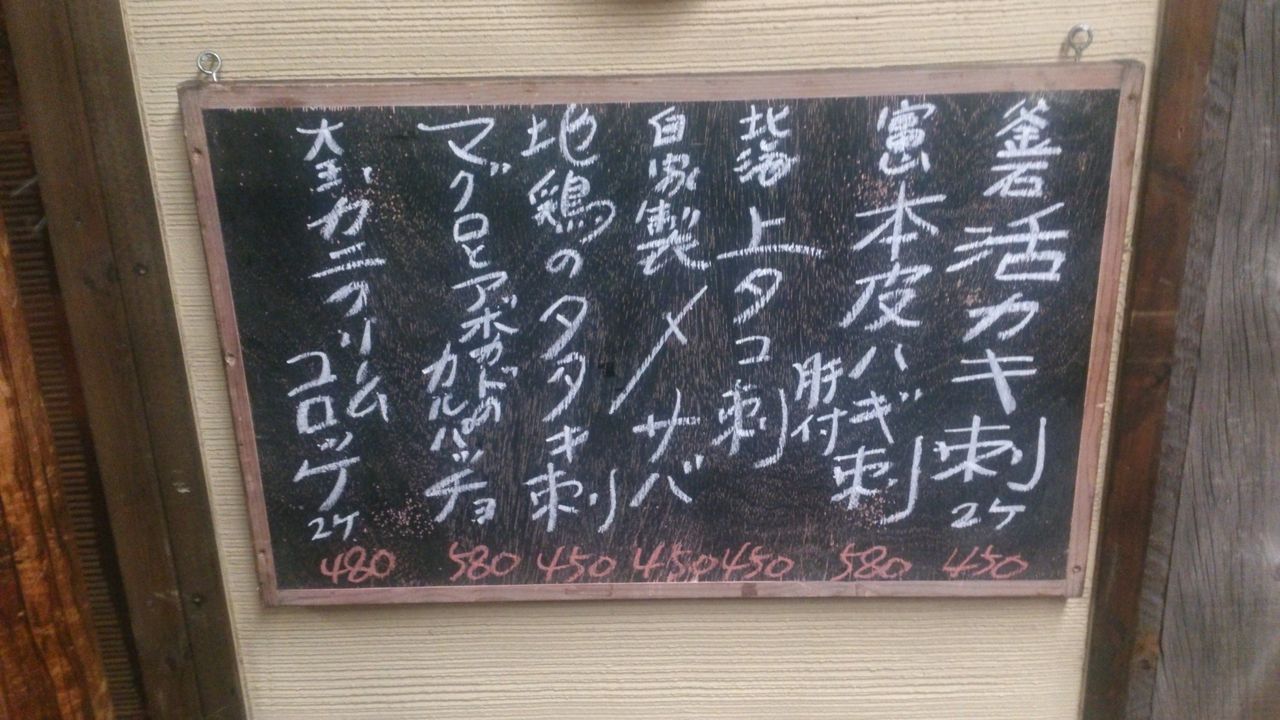 釜石 活カキ刺 2ケ 450
富山 本皮ハギ刺 肝付 580
北海 上タコ刺 450
自家製 〆サバ 450
地鶏のタタキ刺 450
マグロとアボカドの カルパッチョ 580
大玉 カニクリーム コロッケ 2ケ 480